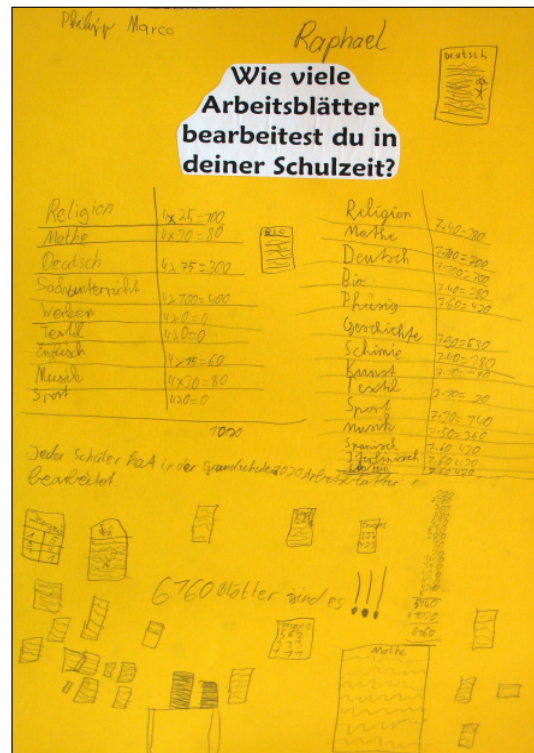 Philipp Marco
Raphael
Deutsch
Wie viele
Arbeitsblätter
bearbeitest du in
deiner Schulzeit?
Religion 4x25=100
Mathe 4x20=80
Deutsch 4x75=300
Sachunterricht 4x100=400
Werken 4x0=0
Textil 4x0=0
Englisch 4x15=60
Musik 4x20=80
Sport 4x0=0
1020
BIO
Religion 7·40=280
Mathe 7·100=700
Deutsch 7·100=700
Bio 7·40=280
Phüsig 7·60=420
Geschichte 7·90=630
Schimie 7·40=280
Kunst
Textil
Sport 7·20=140
Musik
Spanisch 7·60 420
7·60 420
7·60 420
Jeder Schüler hat in der Grundschule 1020 Arbeitsblätter
bearbeitet.
6760 Blätter sind es !!!
6760
Mathe